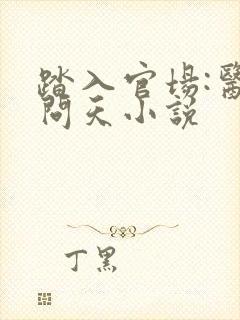 踏入官場:醫
問天小說
丁黑